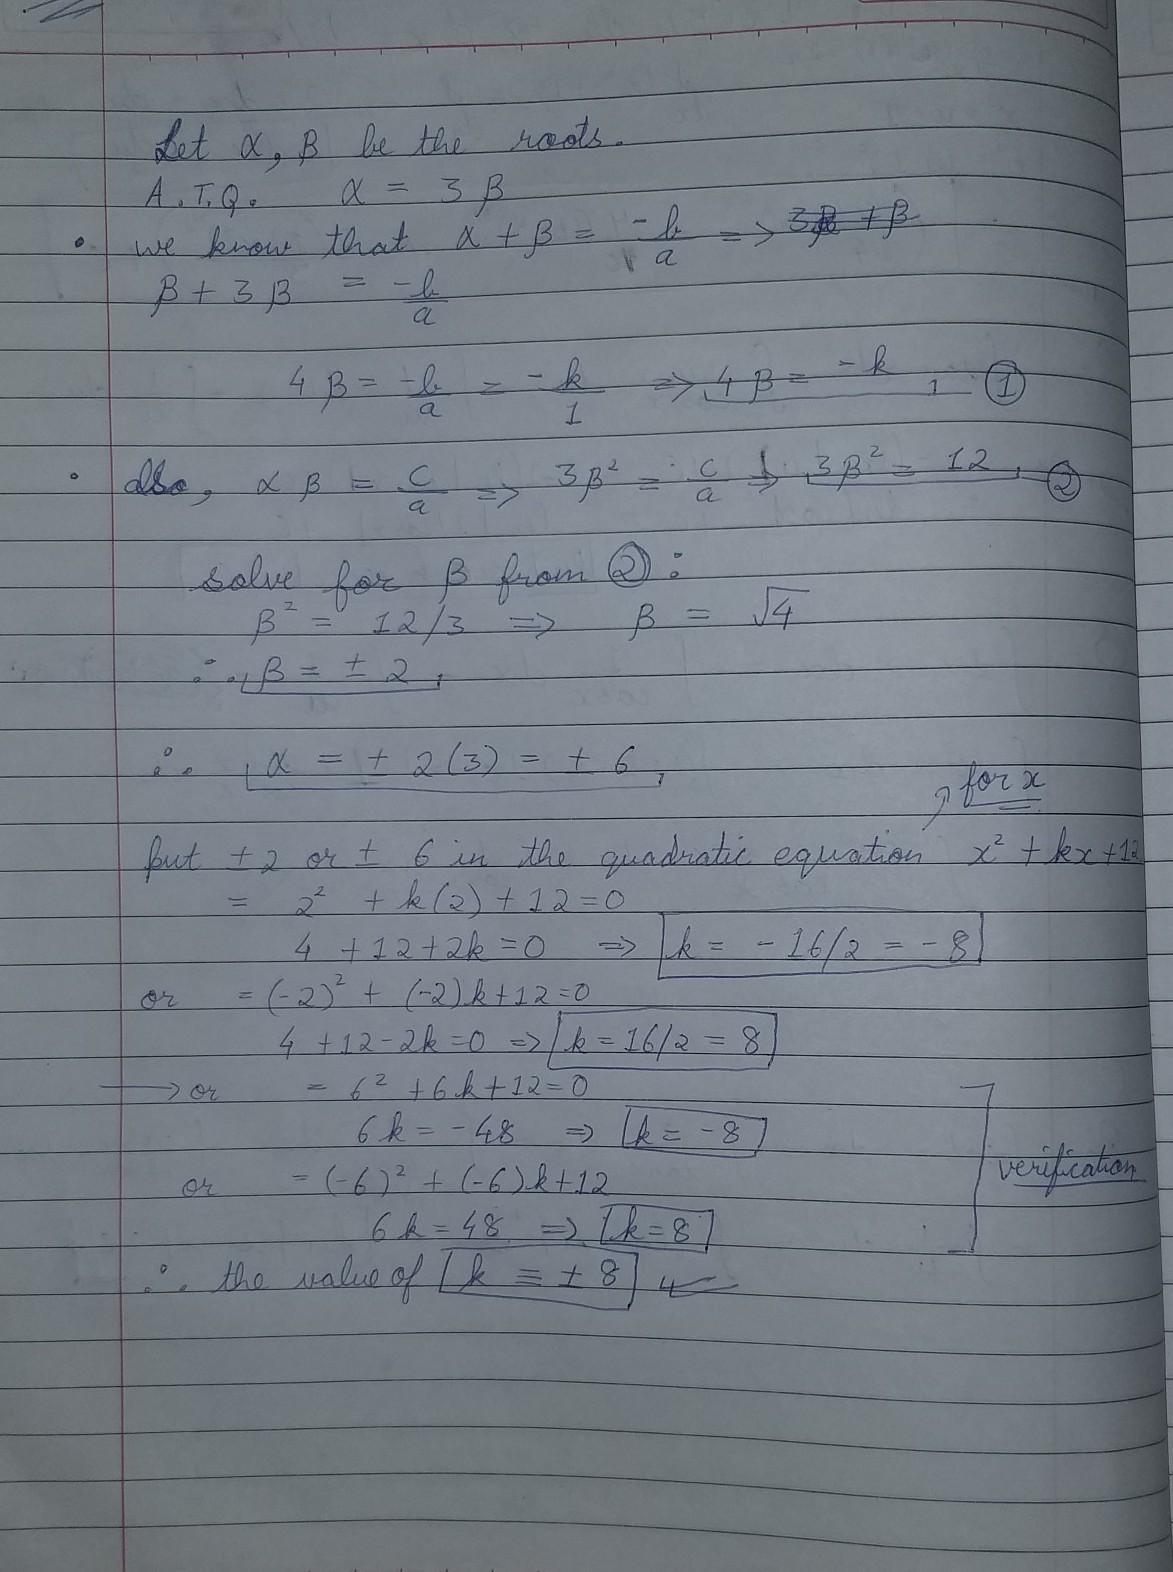 Let α, β be the roots.
A.T.Q. α = 3β
• we know that α + β = -b/a => 3β + β
β + 3β = -b/a
4β = -b/a = -k/1 => 4β = -k ①
• Also, αβ = c/a => 3β² = c/a => 3β² = 12 ②
solve for β from ②:
β² = 12/3 => β = √4
∴ β = ± 2
∴ α = ± 2(3) = ± 6
for x
put ±2 or ± 6 in the quadratic equation x² + kx + 12
= 2² + k(2) + 12 = 0
4 + 12 + 2k = 0 => k = -16/2 = -8
or = (-2)² + (-2)k + 12 = 0
4 + 12 - 2k = 0 => k = 16/2 = 8
→ or = 6² + 6k + 12 = 0
6k = -48 => k = -8
verification
or = (-6)² + (-6)k + 12
6k = 48 => k = 8
∴ the value of k = ± 8